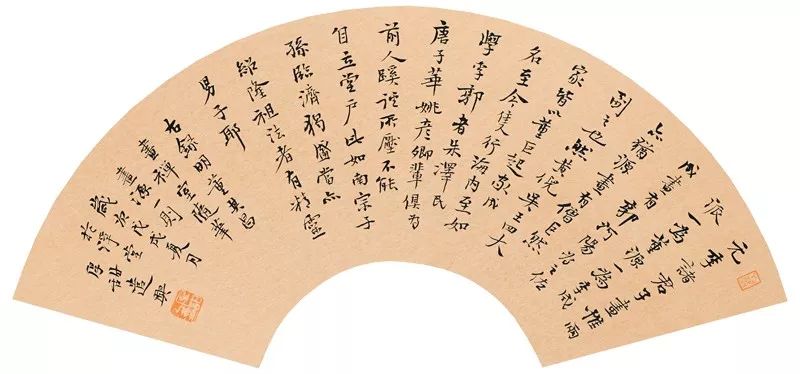 元季諸君子畫惟兩
派一為董源一為李成
成畫有郭河陽為之佐
亦猶源畫有僧巨然
副之也然黃倪吳王四大
家皆以董巨起家成
名至今隻行海內至如
學李郭者朱澤民
唐子華姚彥卿輩俱為
前人蹊徑所壓不能
自立堂戶此如南宗子
孫臨濟獨盛當亦
紹隆祖法者有精靈
男子耶
右錄明董其昌
畫禪室隨筆
畫源一則
歲次戊戌夏月
於淨堂